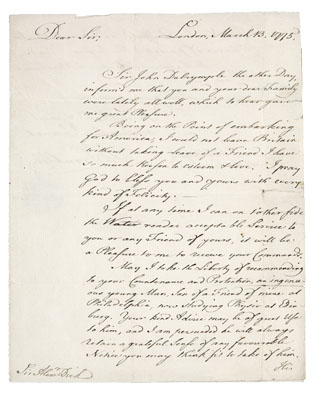 Dear Sir, London, March 13. 1775
Sir John Dalrymple the other Day,
inform'd me that you and your dear Family
were lately all well, which to hear gave
me great Pleasure.
Being on the Point of embarking
for America, I would not leave Britain
without taking leave of a Friend I have
so much Reason to esteem & love. I pray
God to bless you and yours with every
kind of Felicity. —
If at any time I can on t'other side
the Water render acceptable Service to
you or any Friend of yours, it will be
a Pleasure to me to receive your Commands.
May I take the Liberty of recommending
to your Countenance and Protection, an ingenu-
ous young Man, Son of a Friend of mine at
Philadelphia now studying Physic at Edin-
burg. Your kind Advice may be of great Use
to him, and I am persuaded he will always
retain a grateful Sense of any favourable
Notice you may think fit to take of him.
Sir Alexr. Dick His